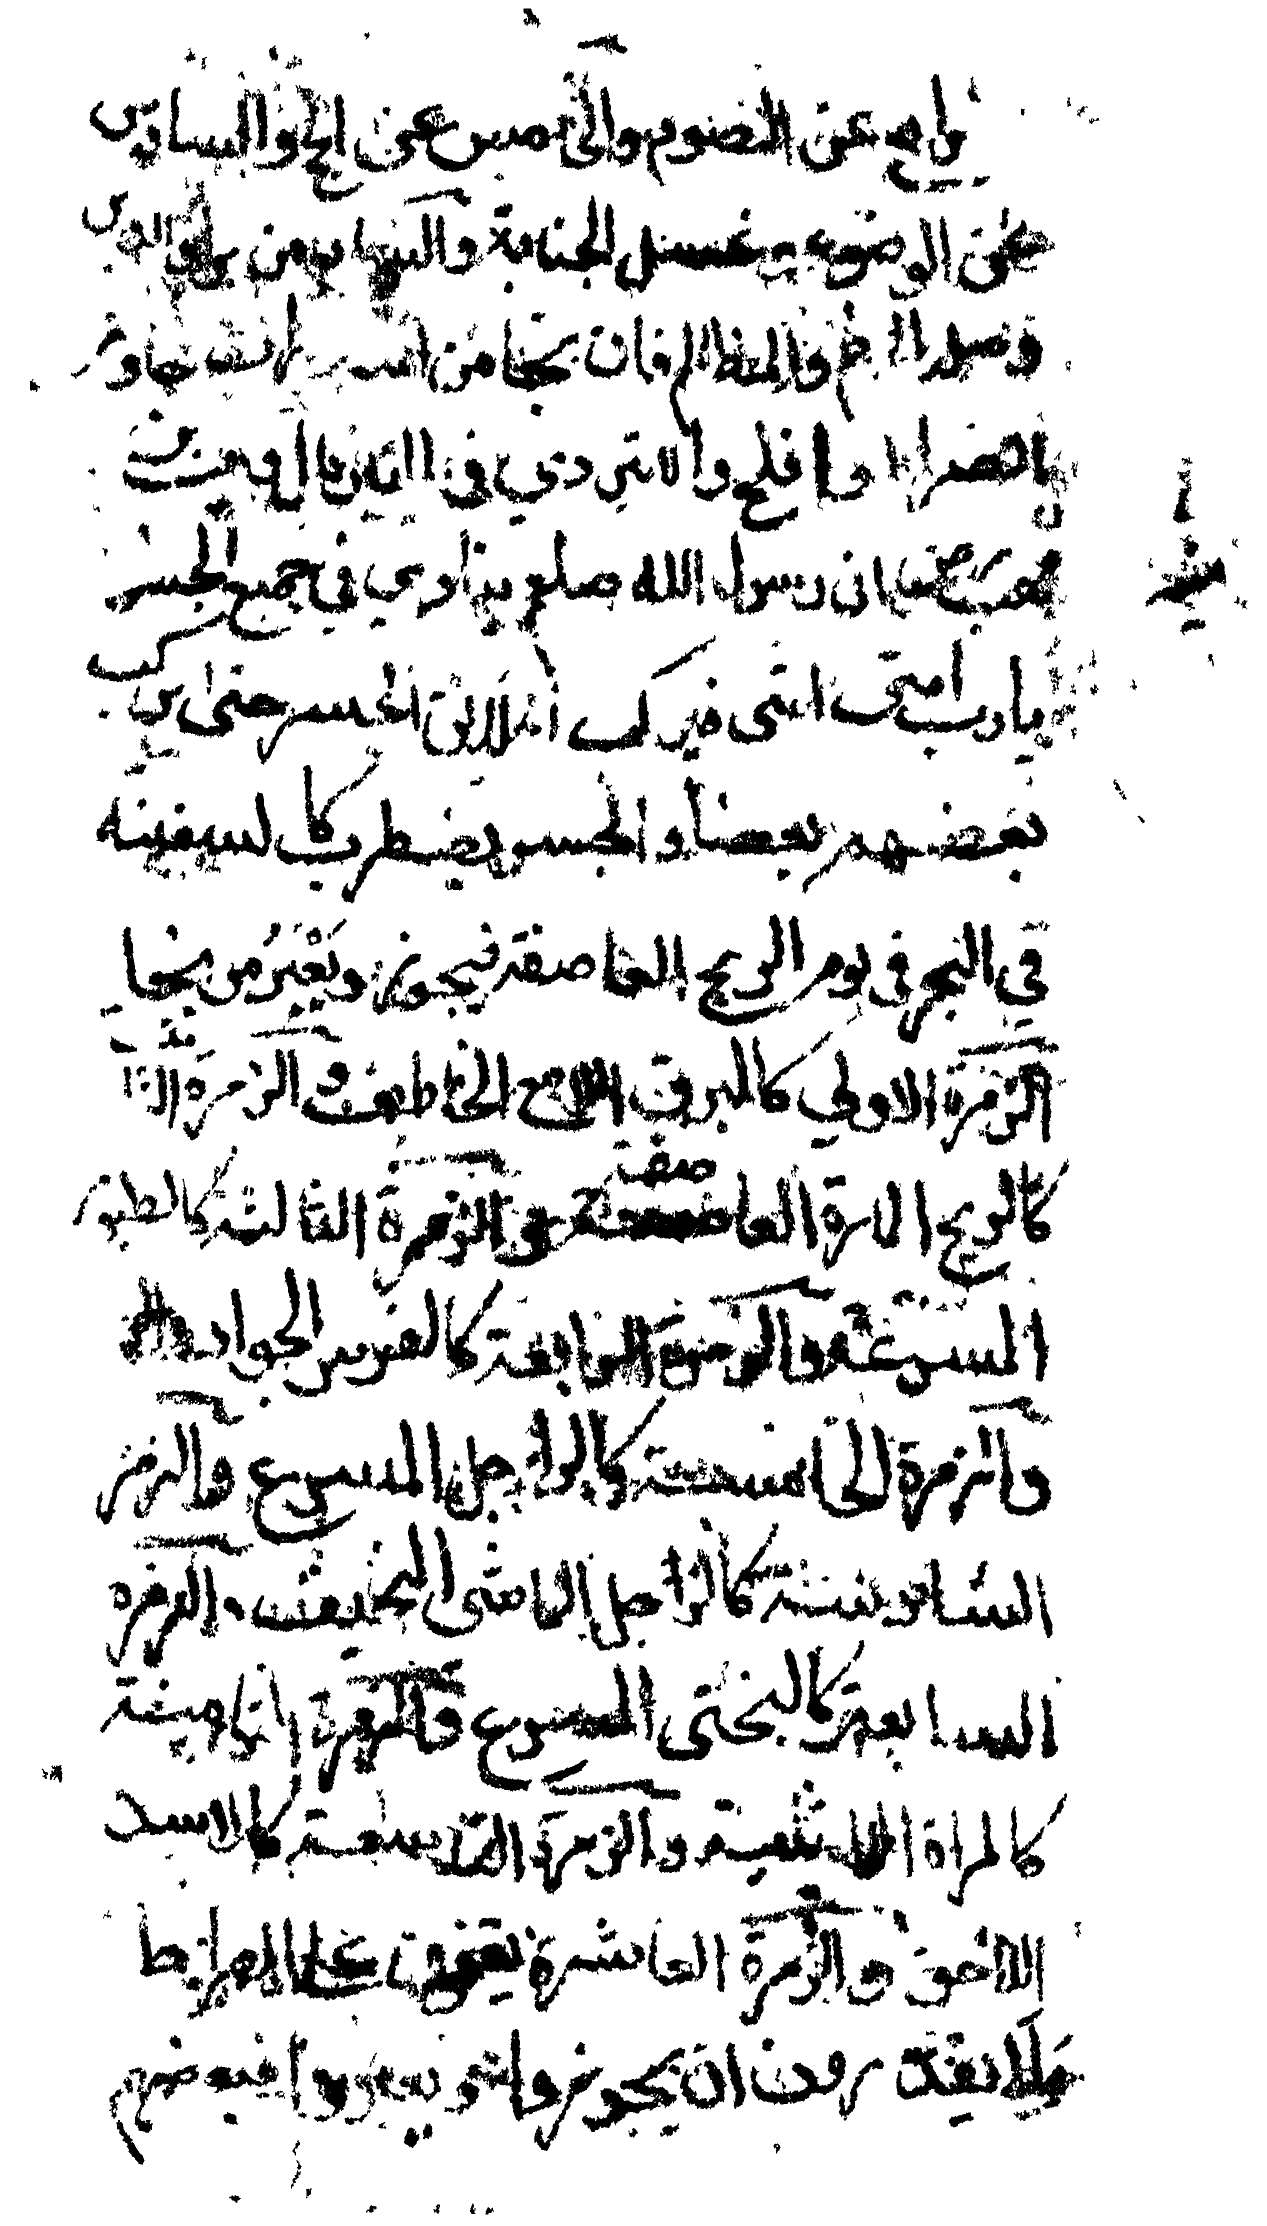 رابع عن الصوم والخامس عن الحج والسادس
عن الوضوء وغسل الجنابة والسابع من بر الوالدين
وصلة الرحم والمظالم فان نجا من جاوز
الصراط وافلح والا تردي في النار قال وهب
رسول الله صلعم ينادي في جميع الجسر
يارب امتي امتي فيركب الخلائق الجسر حتى يركب
بعضهم بعضا والجسر يضطرب كالسفينه
في البحر في يوم الريح العاصفة فيجوز ويعبر من نجا
الزمرة الاولي كالبرق اللامع الخاطف والزمرة الثا
كالريح العاصفة والزمرة الثالثة كالطيور
المسرعة والزمرة الرابعة كالفرس الجواد
والزمرة الخامسة كالراجل المسرع والزمرة
السادسة كالراجل الماشي والزمرة
السابعة كالبختي المسرع والزمرة الثامنة
كالمراة والزمرة التاسعة كالاسد
والزمرة العاشرة يقفون على الصراط
ولا يقدرون ان يجوزوا فبعضهم